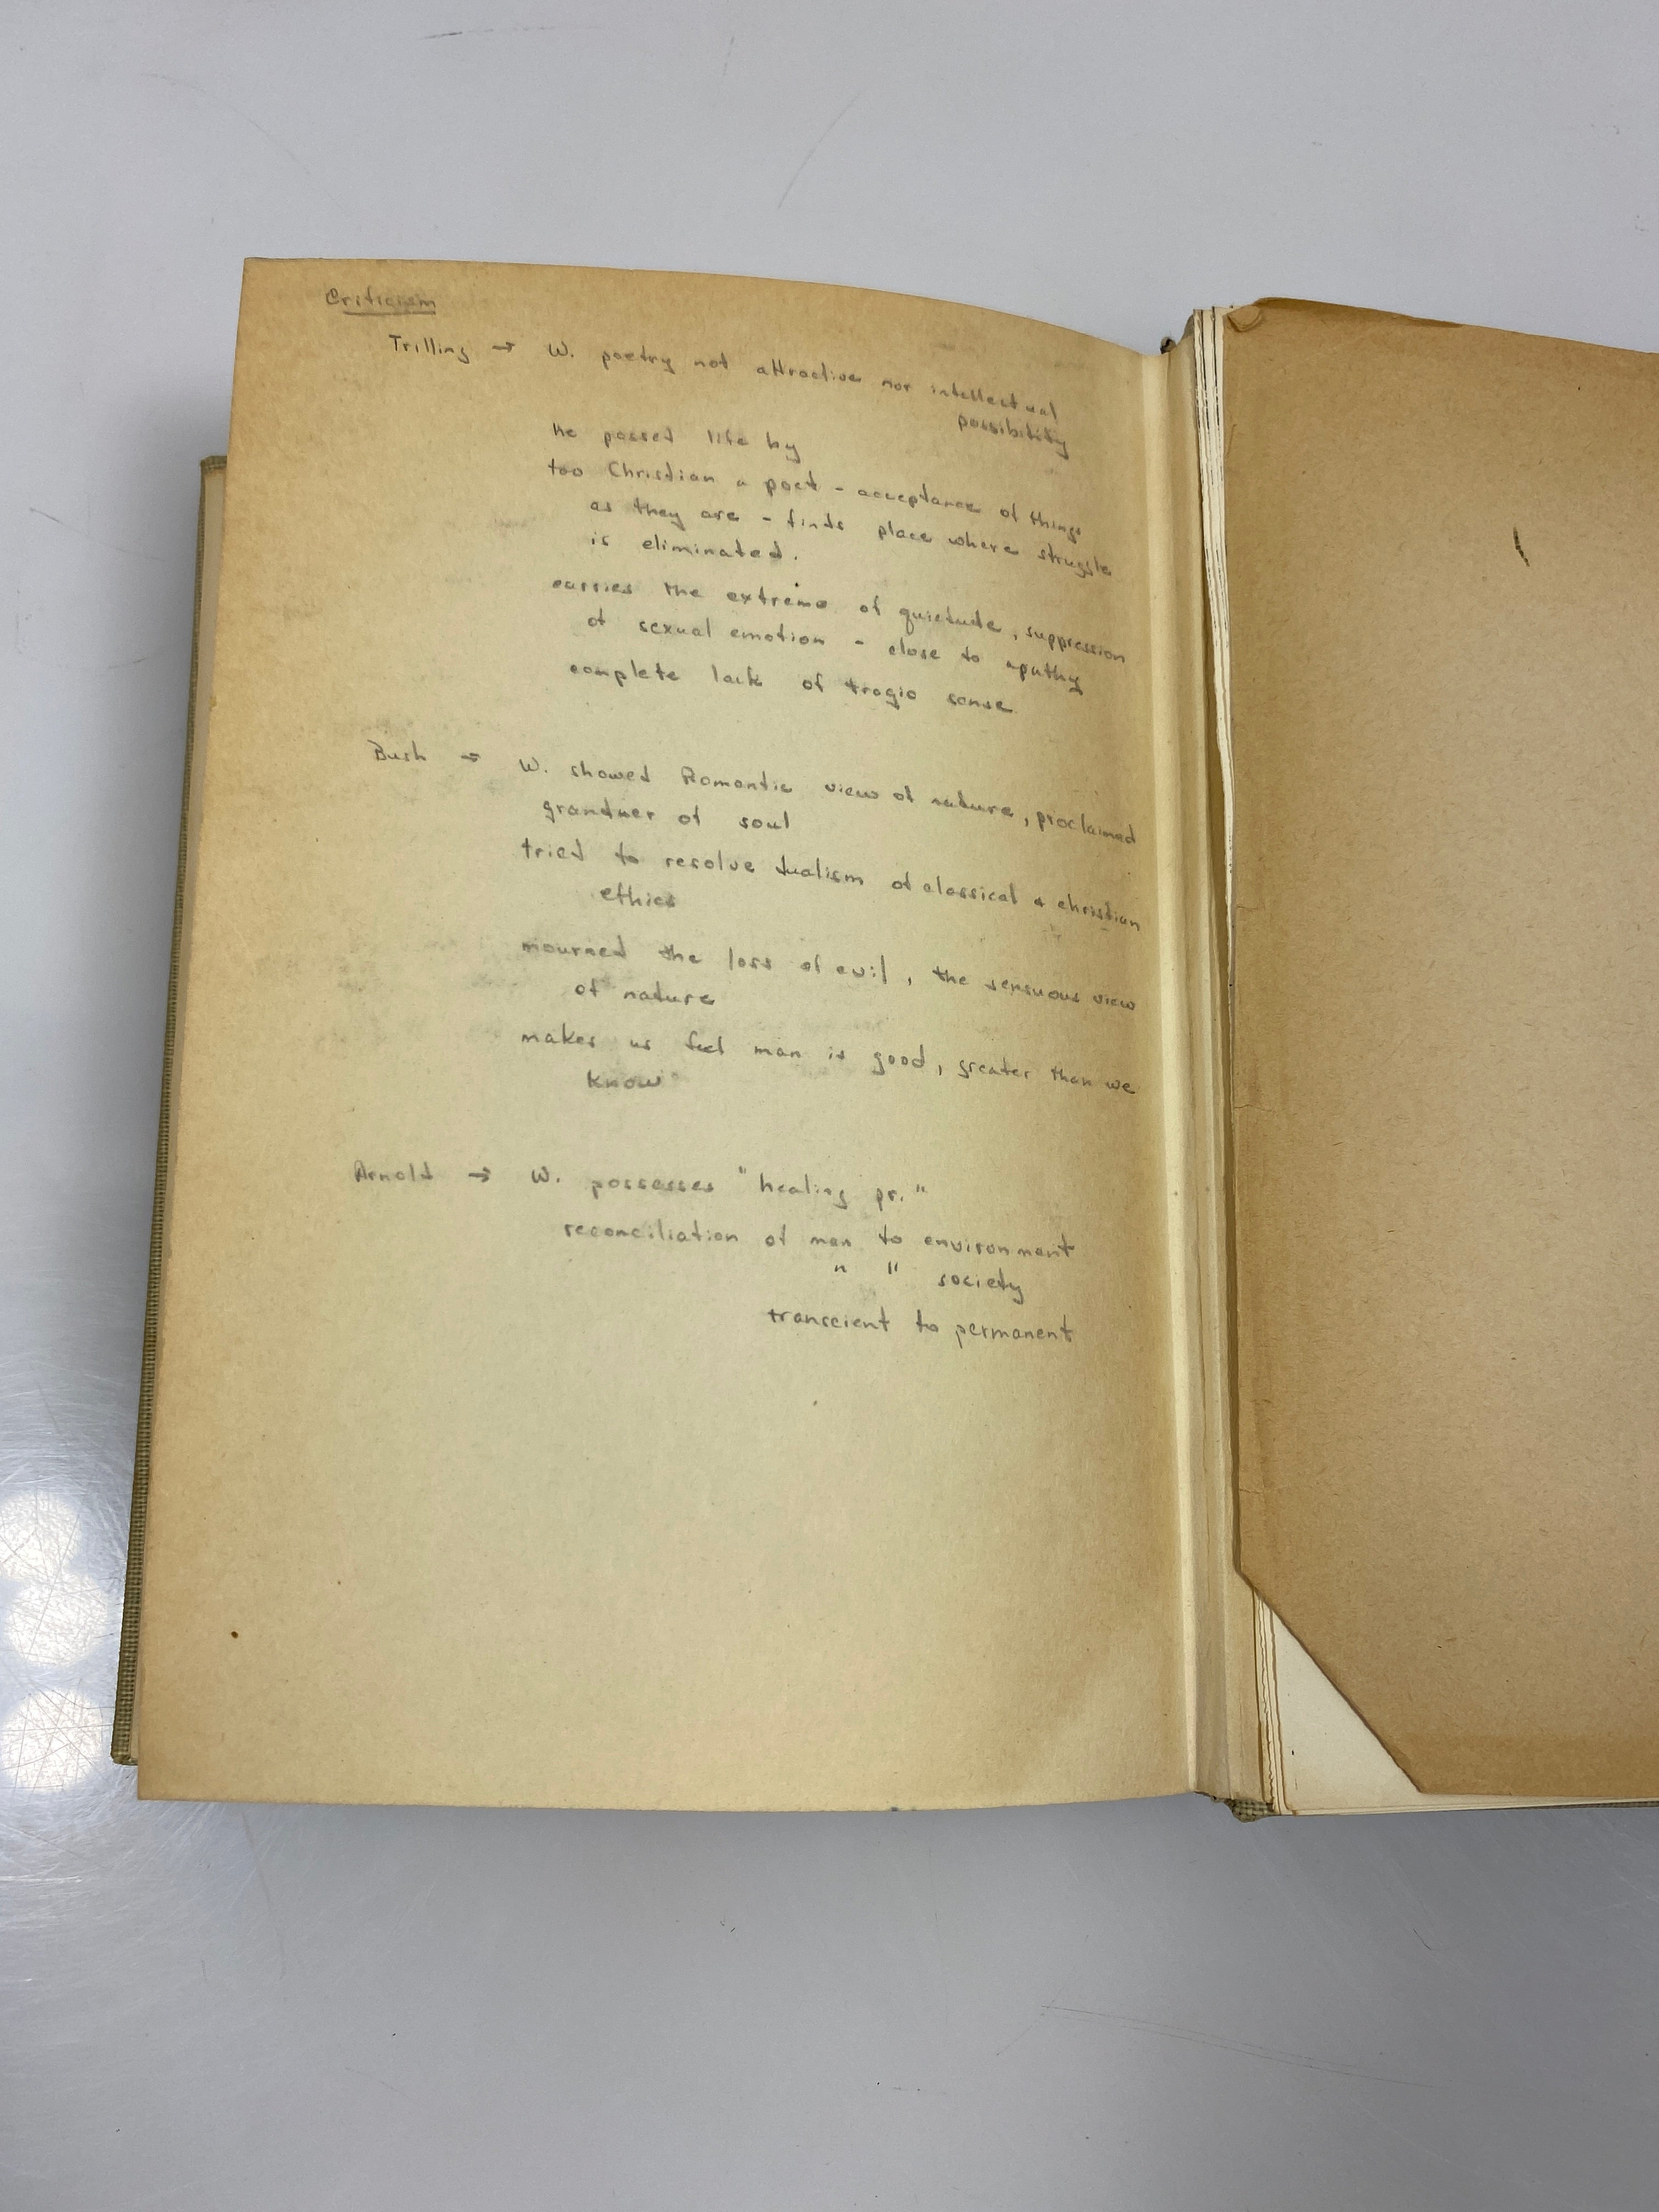 Criticism
Trilling → W. poetry not attractive nor intellectual
possibility
he passed life by
too Christian a poet - acceptance of things
as they are - finds place where struggle
is eliminated.
carries the extreme of quietude, suppression
of sexual emotion - close to apathy
complete lack of tragic sense
Bush → W. showed Romantic view of nature, proclaimed
granduer of soul
tried to resolve dualism of classical & christian
ethics
mourned the loss of evil, the sensuous view
of nature
makes us feel man is good, greater than we
know
Arnold → W. possesses "healing pr."
reconciliation of man to environment
" " society
transcient to permanent